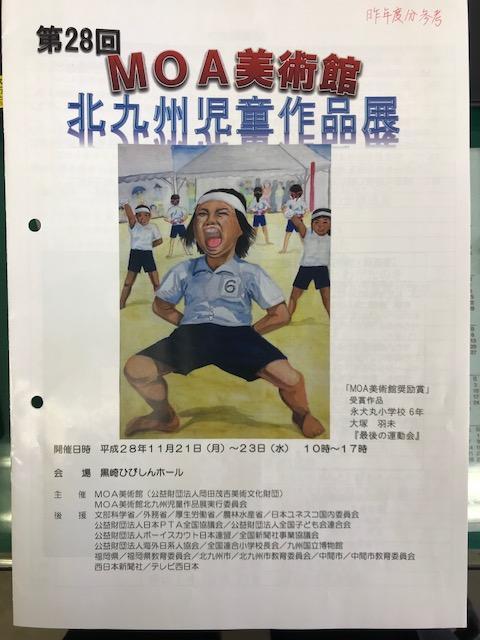 昨年度分参考
第28回
MOA美術館
北九州児童作品展
6
「MOA美術館奨励賞」
受賞作品
永犬丸小学校 6年
大塚 羽未
『最後の運動会』
開催日時 平成28年11月21日(月)~23日(水) 10時~17時
会場 黒崎ひびしんホール
主催 MOA美術館(公益財団法人岡田茂吉美術文化財団)
MOA美術館北九州児童作品展実行委員会
後援 文部科学省/外務省/厚生労働省/農林水産省/日本ユネスコ国内委員会
公益財団法人日本PTA全国協議会/公益財団法人全国子ども会連合会
公益財団法人ボーイスカウト日本連盟/全国新聞社事業協議会
公益財団法人海外日系人協会/全国連合小学校長会/九州国立博物館
福岡県/福岡県教育委員会/北九州市/北九州市教育委員会/中間市/中間市教育委員会
西日本新聞社/テレビ西日本